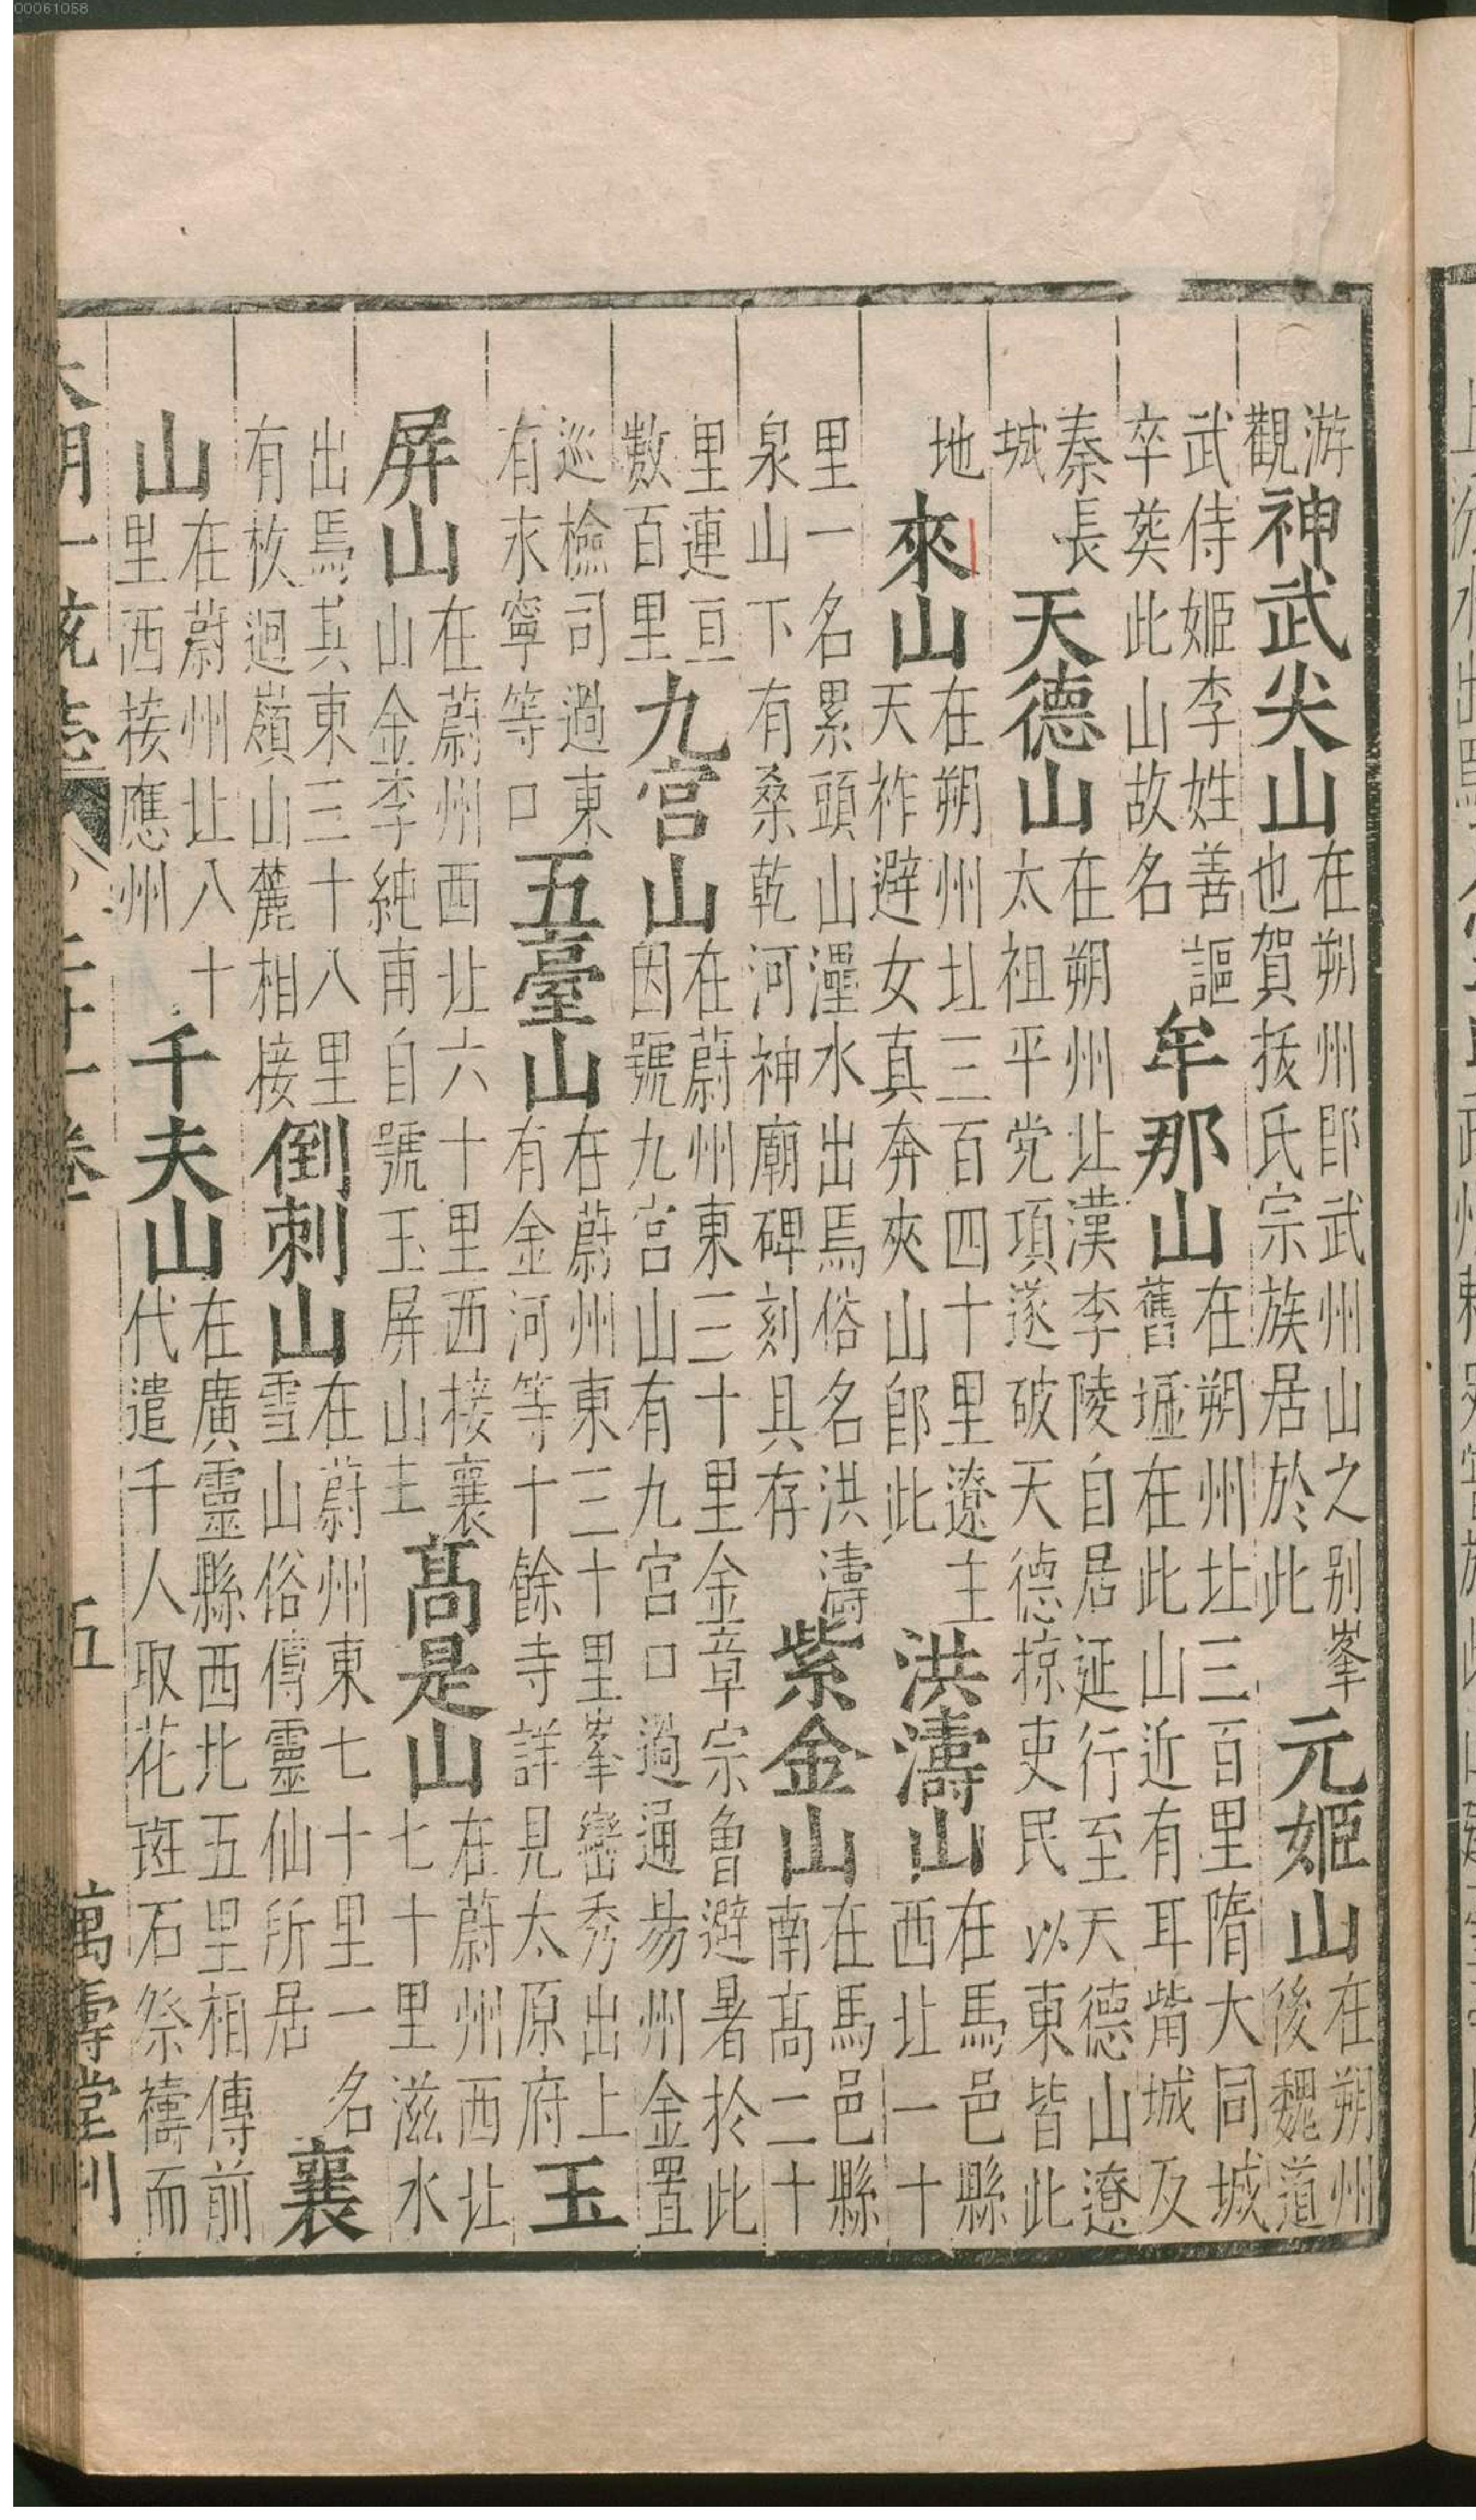 游觀神武尖山在朔州郎武州山之别峯也賀㧞氏宗族居於此元姬山在朔州後魏道
武侍姬李姓善謳卒葬此山故名牟那山在朔州北三百里隋大同城舊墟在此山近有耳觜城及
秦長城天德山在朔州北漢李陵自居延行至天德山遼太祖平党項遂破天德掠吏民以東皆此
地來山在朔州北三百四十里遼主天祚避女真奔夾山郎此洪濤山在馬邑縣西北一十
里一名累頭山灅水出焉俗名洪濤泉山下有桑乾河神廟碑刻具存紫金山在馬邑縣南髙二十
里連亘數百里九宫山在蔚州東三十里金章宗魯避暑於此因號九宫山有九宫口過通昜州金置
巡檢司過東有永寧等口五臺山在蔚州東三十里峯巒秀出上有金河等十餘寺詳見太原府玉
屏山在蔚州西北六十里西接襄山金李純甫自號玉屏山主髙是山在蔚州西北七十里滋水
出焉其東三十八里有枚迴嶺山麓相接倒刺山在蔚州東七十里一名雪山俗傳靈仙所居襄
山在蔚州北八十里西接應州千夫山在廣靈縣西北五里相傳前代遣千人取花斑石祭禱而
大明一統志 二十一卷 五 萬壽堂刊
00061058